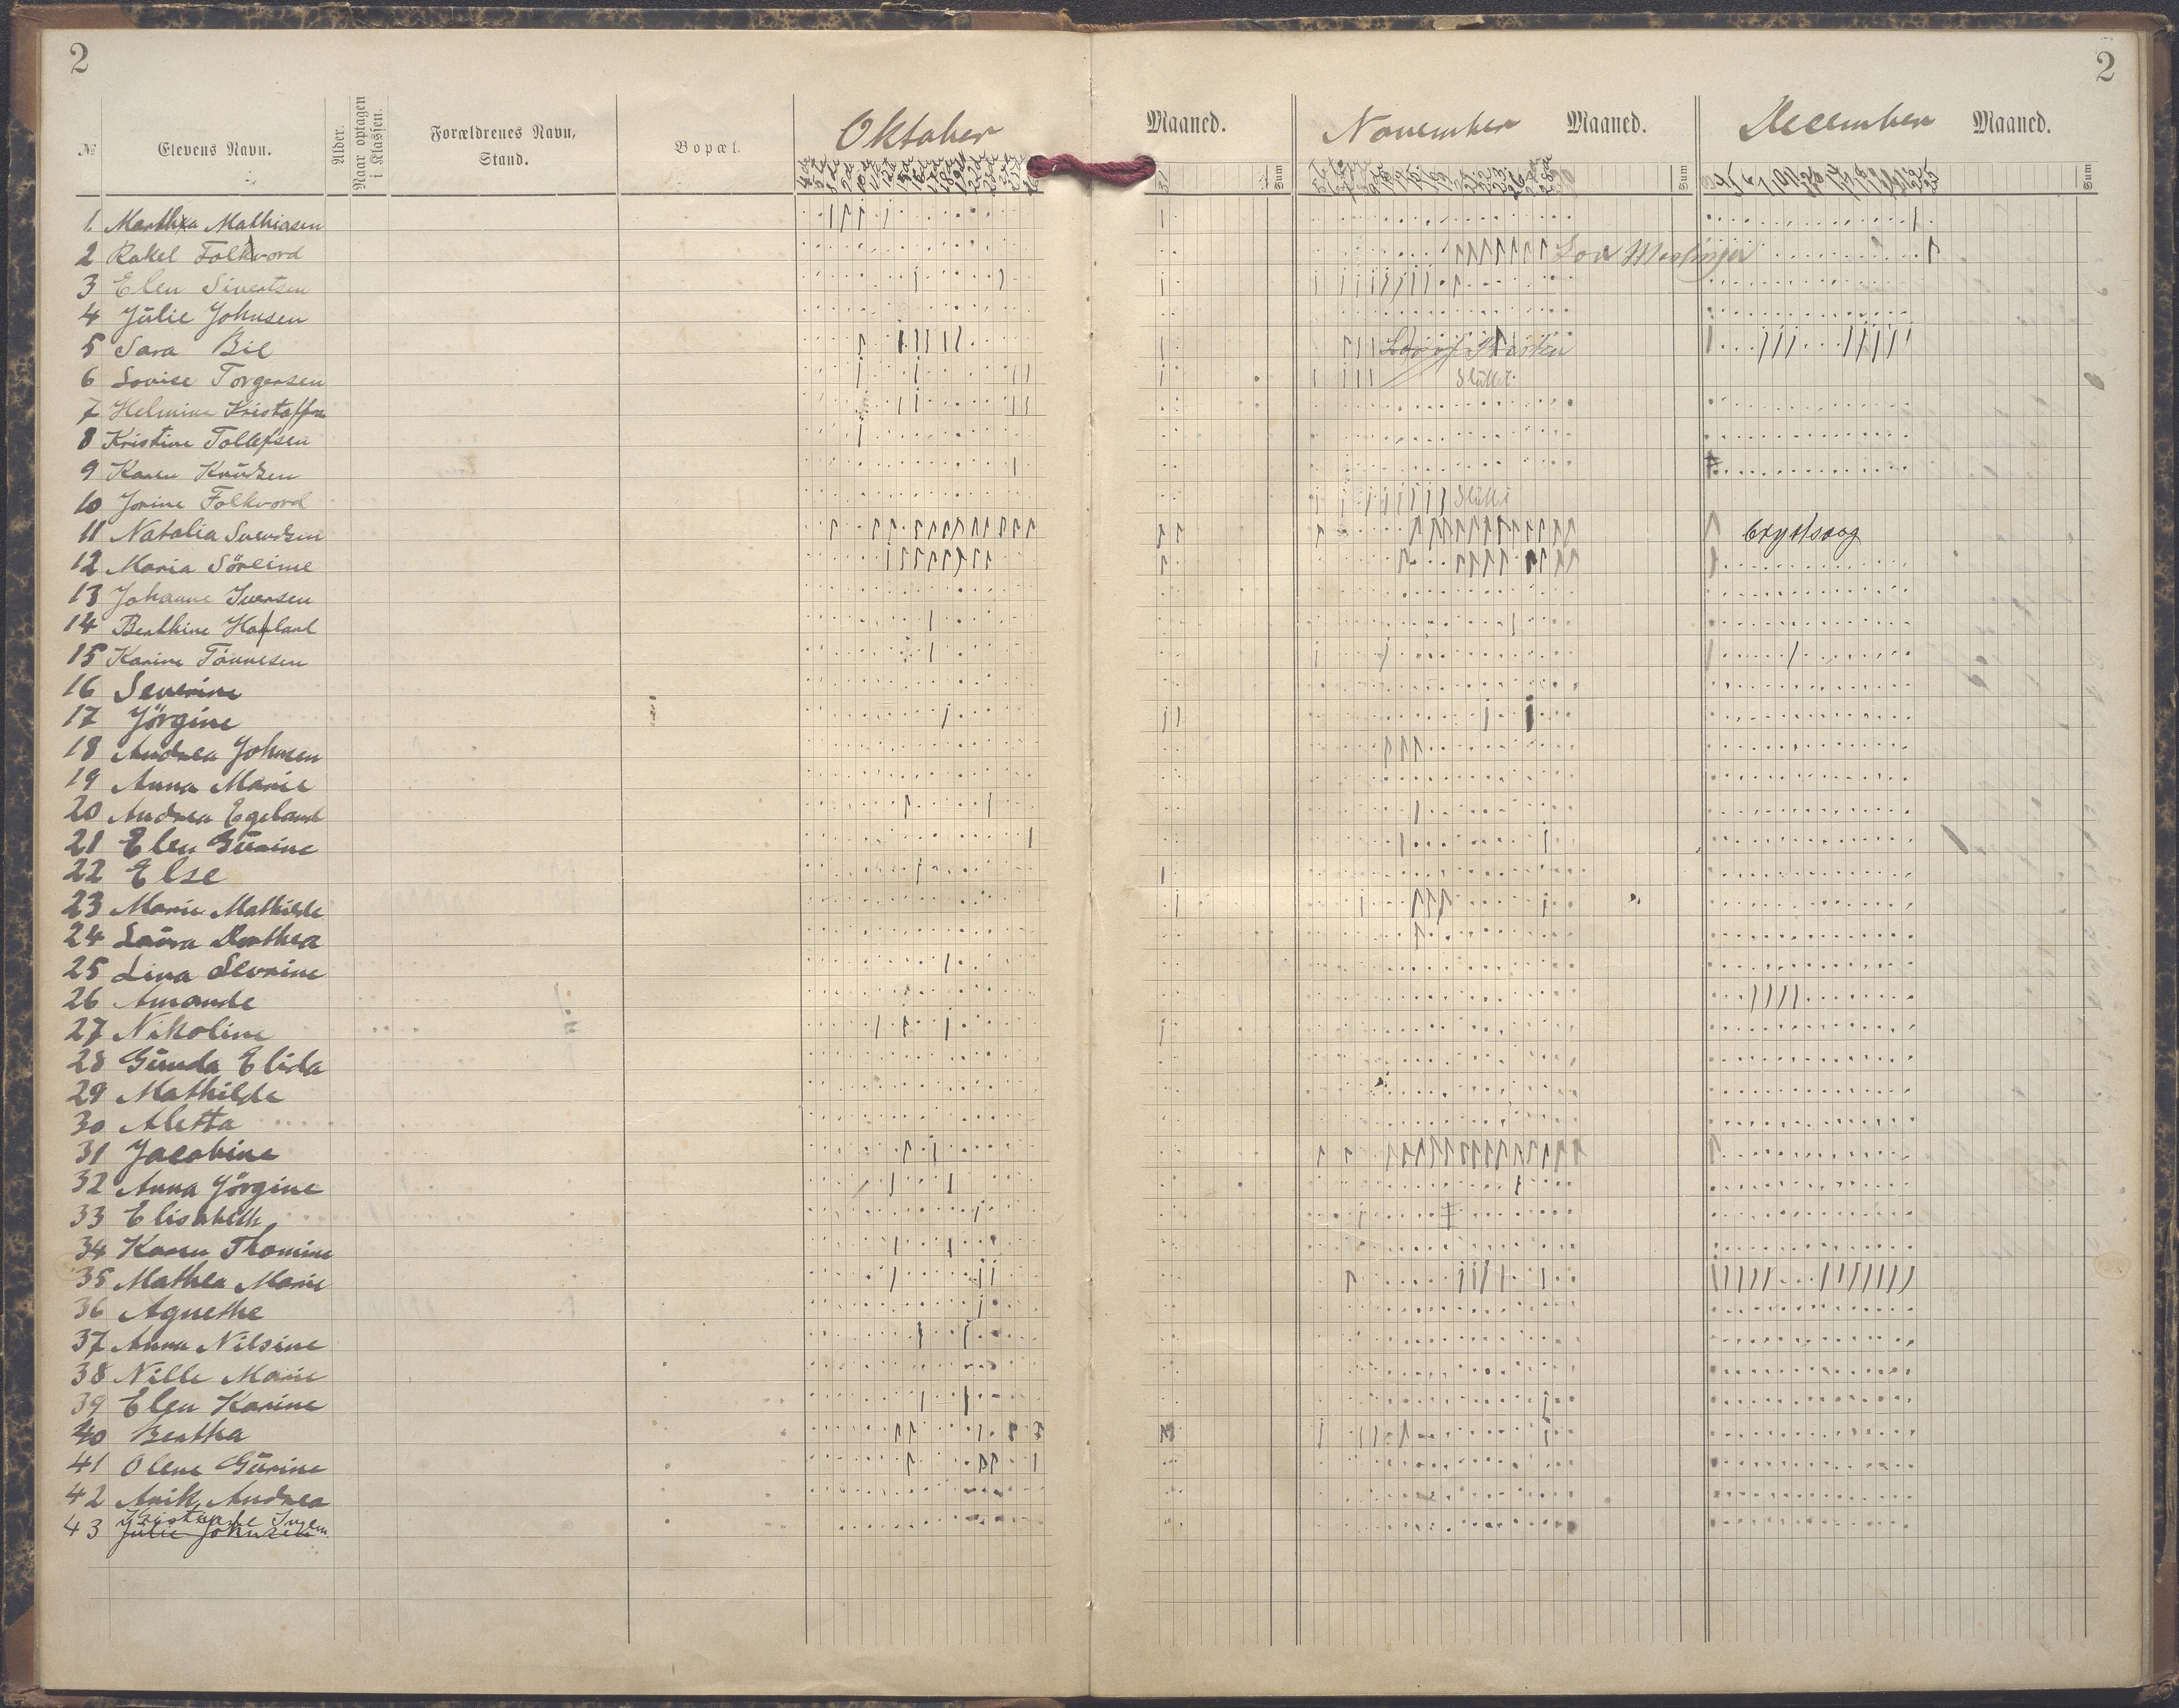 2
2
№
Elevens Navn.
Alder.
Naar optagen i Klassen.
Forældrenes Navn, Stand.
Bopæl.
Oktober Maaned.
Sum
November Maaned.
Sum
December Maaned.
Sum
1. Martha Mathiasen
2 Rakel Folkvord
3 Elen Sivertsen
4 Julie Johnsen
5 Sara Bie
6 Lovise Torgersen Sluttet
7 Helmine
8 Kristine Tollefsen
9 Karen Knudsen
10 Jorine Folkvord Sluttet
11 Natalia Svendsen
12 Maria Söreime
13 Johanne Iversen
14 Berthine
15 Karine Tönnesen
16 Severine
17 Jörgine
18 Andrea Johnsen
19 Anna Marie
20 Andrea Egeland
21 Elen Gurine
22 Else
23 Marie Mathilde
24 Laura Dorthea
25 Lina Sevrine
26 Amande
27 Nikoline
28 Gunda Elida
29 Mathilde
30 Aletta
31 Jacobine
32 Anna Jörgine
33 Elisabeth
34 Karen Thomine
35 Mathea Marie
36 Agnethe
37 Anna Nilsine
38 Nille Marie
39 Elen Karine
40 Bertha
41 Olene Gurine
42 Anik Andrea
43 Julie Johnsen